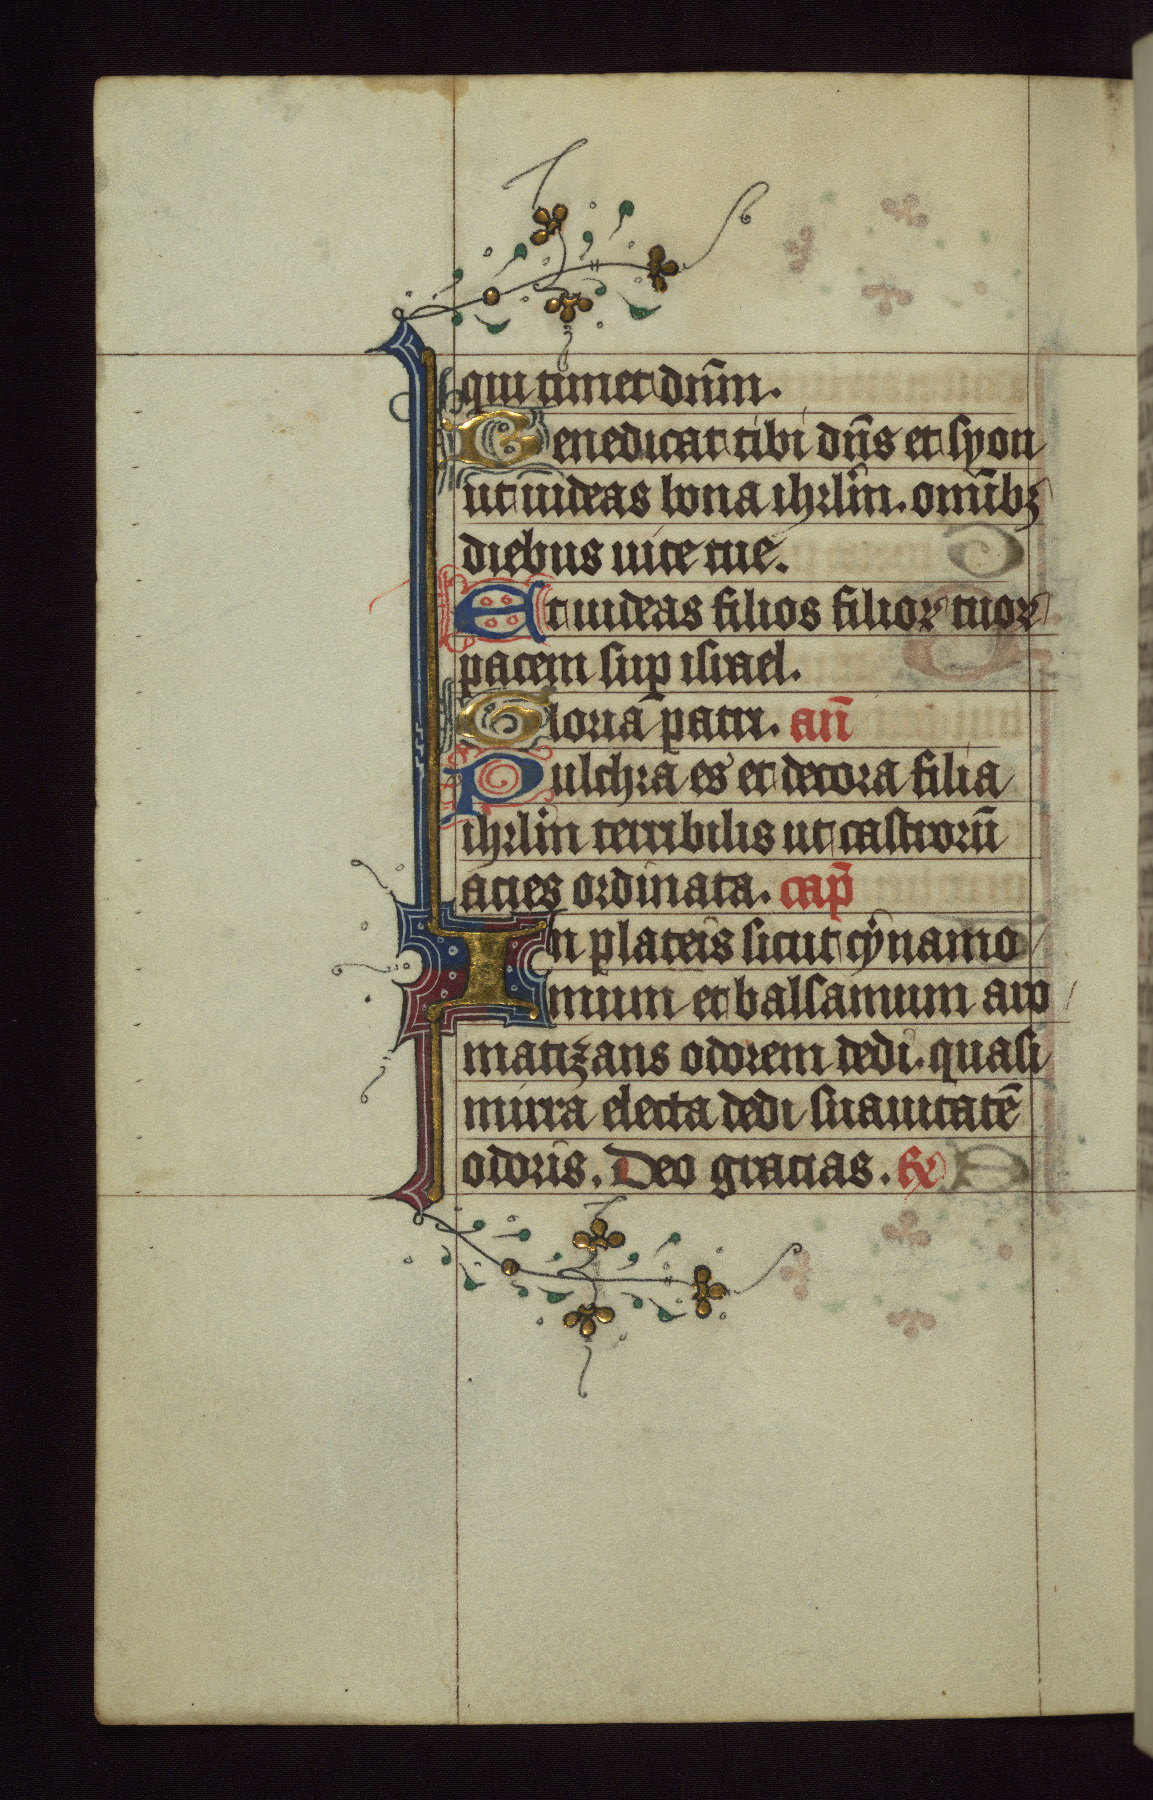 qui timet dnm̄.
Benedicat tibi dn̄s et syon
ut uideas bona ihrlm̄. omībꝫ
diebus uite tue.
Et uideas filios filioꝝ tuoꝝ
pacem suꝑ israel.
Gloria patri. an̄
Pulchra es et decora filia
ihrlm̄ terribilis ut castrorū
acies ordinata. cap̄
In plateis sicut cẏnamo
mum et balsamum aro
matizans odorem dedi. quasi
mirra electa dedi suauitatē
odoris. Deo gracias. ℟